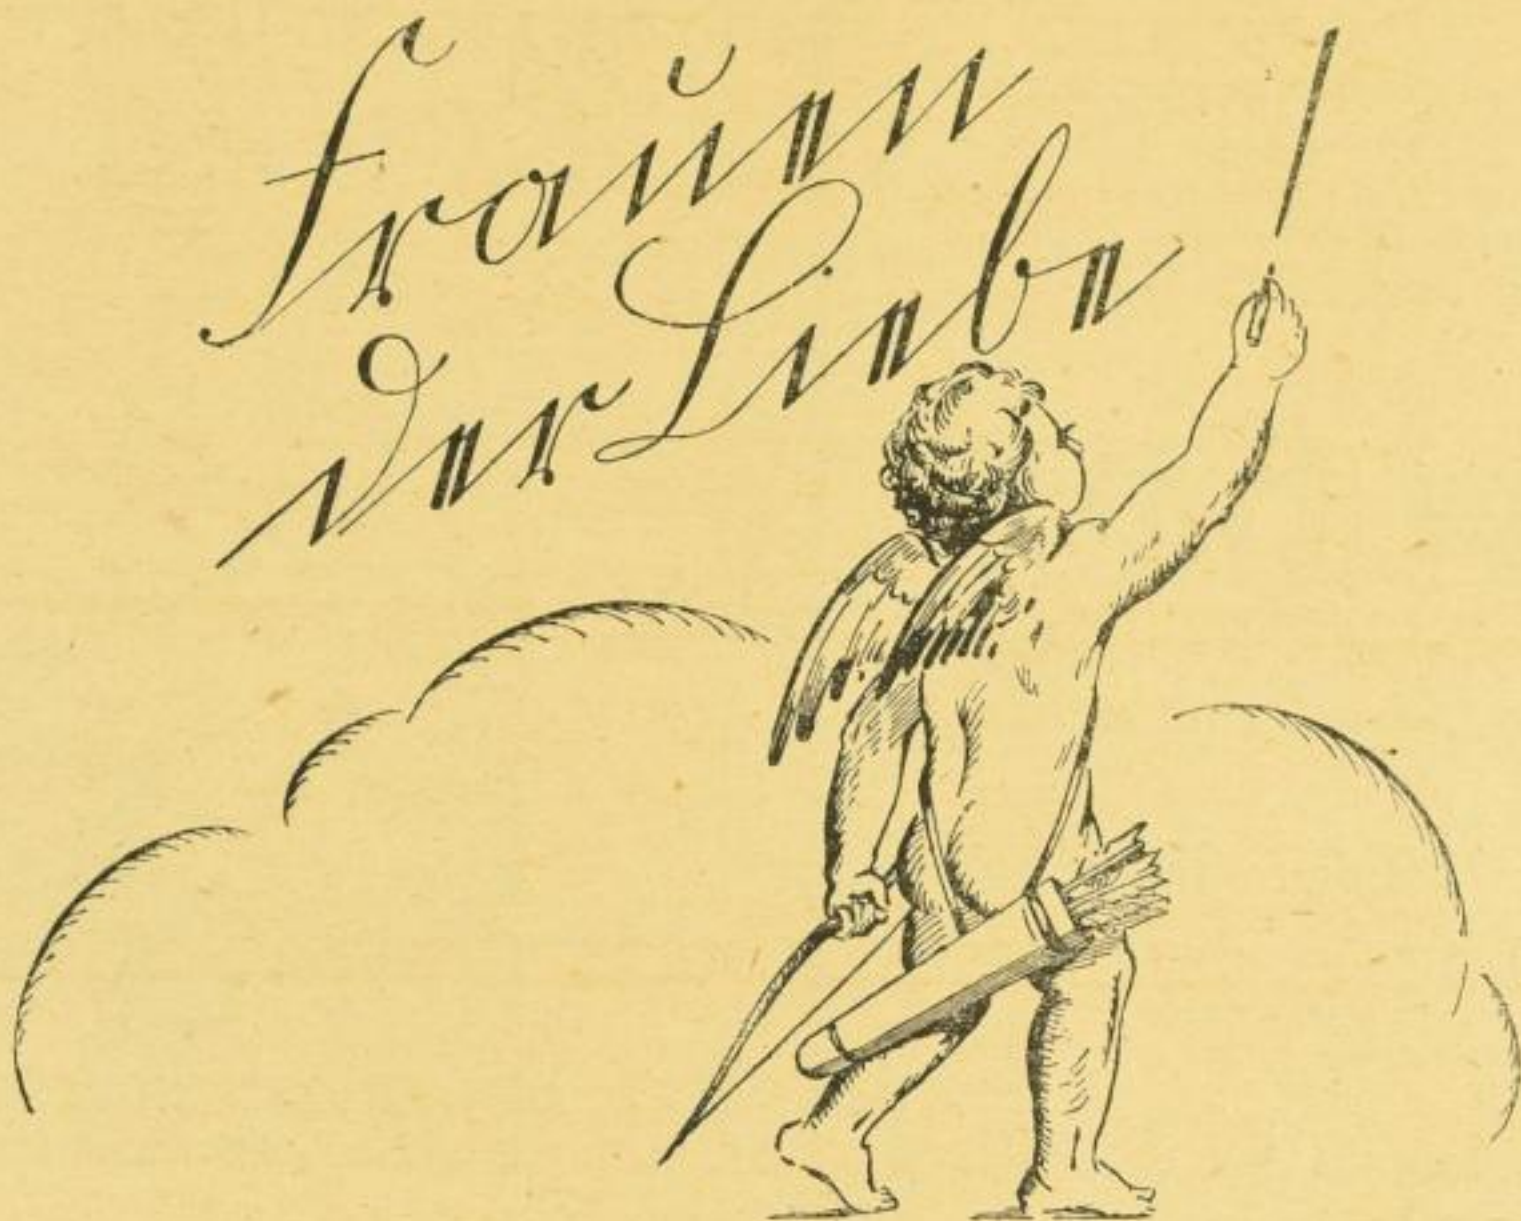 Frauen
der Liebe